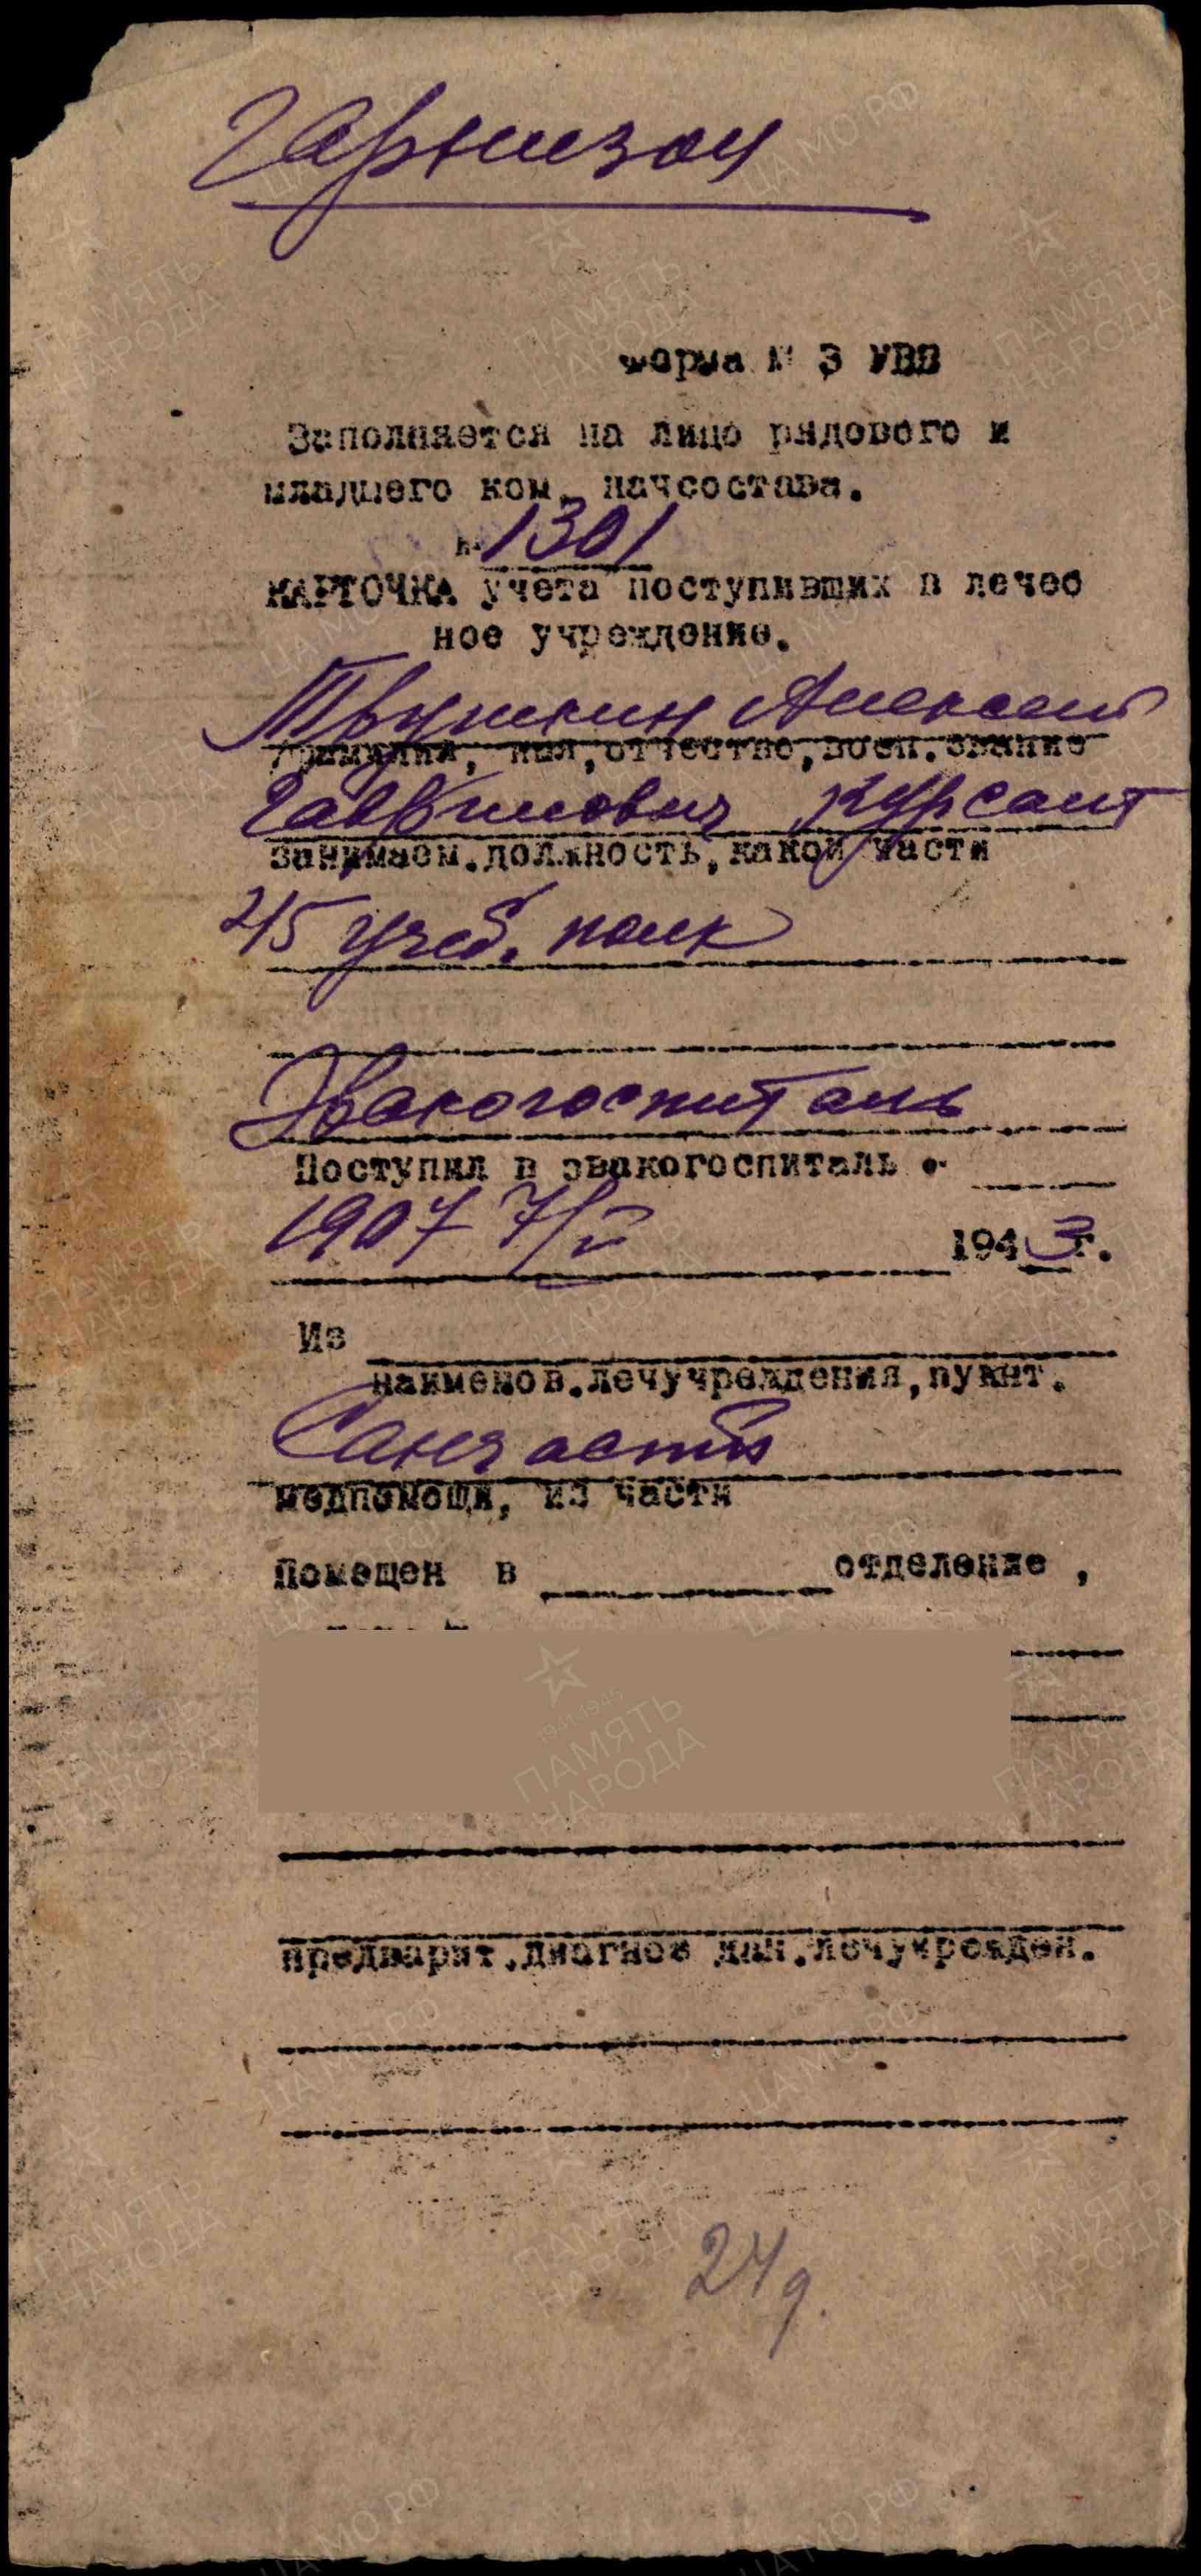 Гарнизон
Форма № 3 УВВ
Заполняется на лицо рядового и
младшего ком. начсостава.
№ 1301
КАРТОЧКА учета поступивших в лечеб
ное учреждение.
Алексей
фамилия, имя, отчество, воен. звание
Гаврилович курсант
занимаем. должность, какой части
215 учеб. полк
Эвакогоспиталь
Поступил в эвакогоспиталь
1907 7/V 1943г.
Из
наименов. лечучреждения, пункт.
Санчасти
медпомощи, из части
Помещен в отделение,
предварит. диагноз дан. лечучрежден.
24 д.
ПАМЯТЬ НАРОДА
ЦА МО РФ